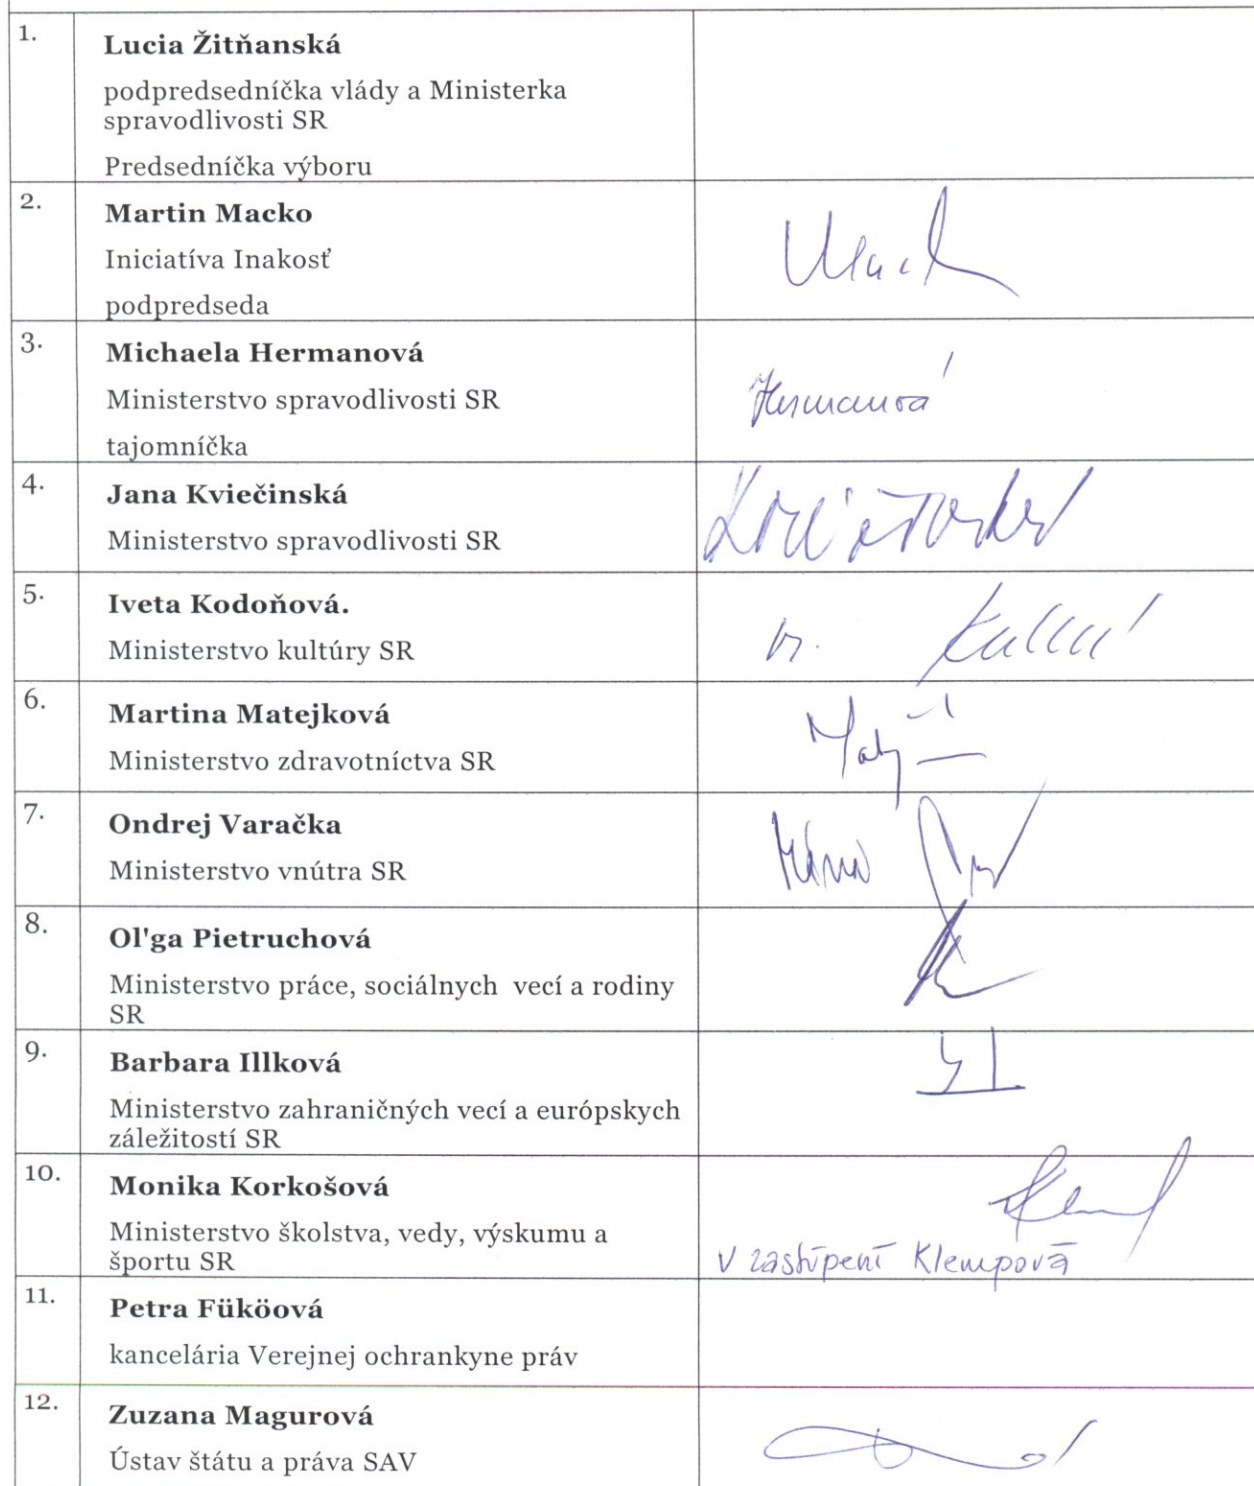 1.
Lucia Žitňanská
podpredsedníčka vlády a Ministerka
spravodlivosti SR
Predsedníčka výboru
2.
Martin Macko
Iniciatíva Inakosť
podpredseda
3.
Michaela Hermanová
Ministerstvo spravodlivosti SR
tajomníčka
Hermanová
4.
Jana Kviečinská
Ministerstvo spravodlivosti SR
5.
Iveta Kodoňová.
Ministerstvo kultúry SR
6.
Martina Matejková
Ministerstvo zdravotníctva SR
7.
Ondrej Varačka
Ministerstvo vnútra SR
8.
Ol'ga Pietruchová
Ministerstvo práce, sociálnych vecí a rodiny
SR
9.
Barbara Illková
Ministerstvo zahraničných vecí a európskych
záležitostí SR
10.
Monika Korkošová
Ministerstvo školstva, vedy, výskumu a
športu SR
v zastúpení Klempová
11.
Petra Füköová
kancelária Verejnej ochrankyne práv
12.
Zuzana Magurová
Ústav štátu a práva SAV